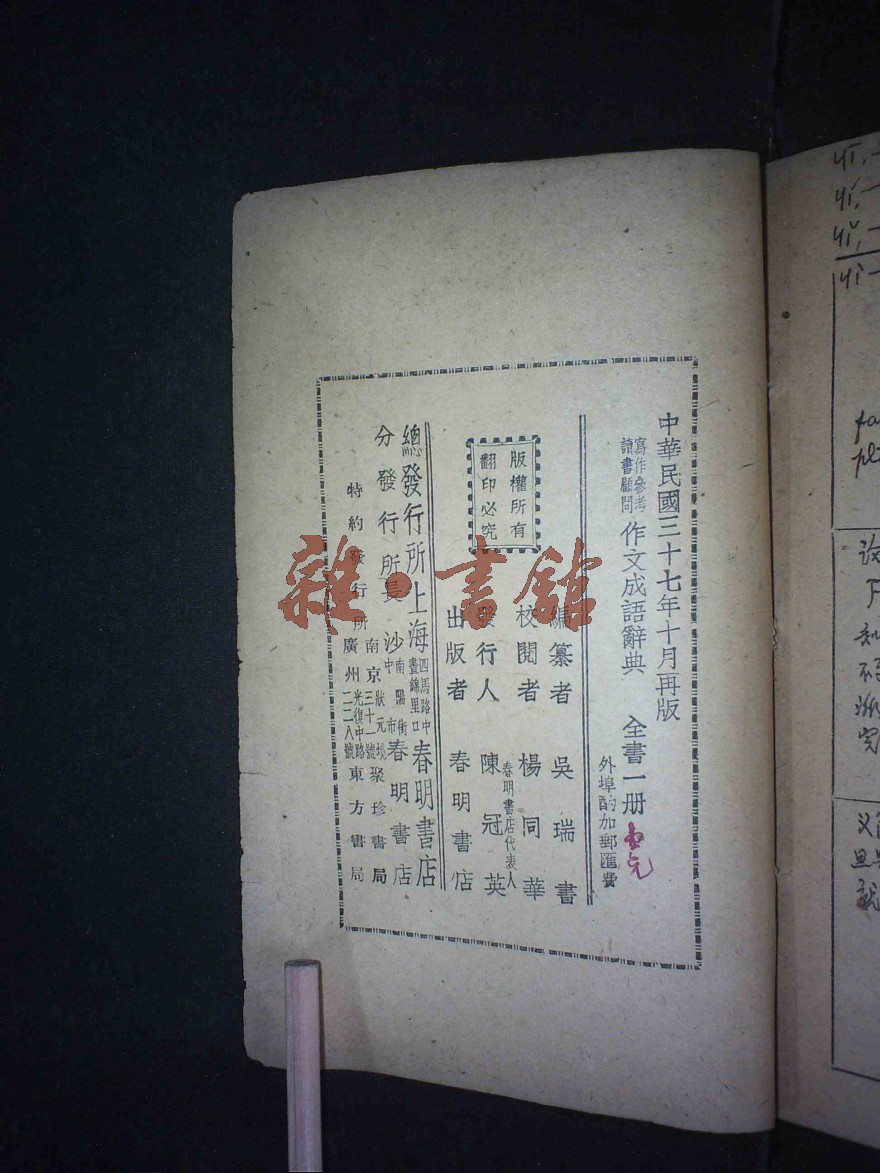 中華民國三十七年十月再版
寫作參考
讀書顧問
作文成語辭典 全書一册
外埠酌加郵匯費
版權所有
翻印必究
編纂者 吳瑞書
校閱者 楊同華
春明書店代表人
發行人 陳冠英
出版者 春明書店
總發行所 上海
四馬路中
晝錦里口
春明書店
分發行所 長沙
南陽街
中市
春明書店
特約發行所
南京
狀元境
三十一號
聚珍書局
廣州
光復中路
一二八號
東方書局
雜·書館